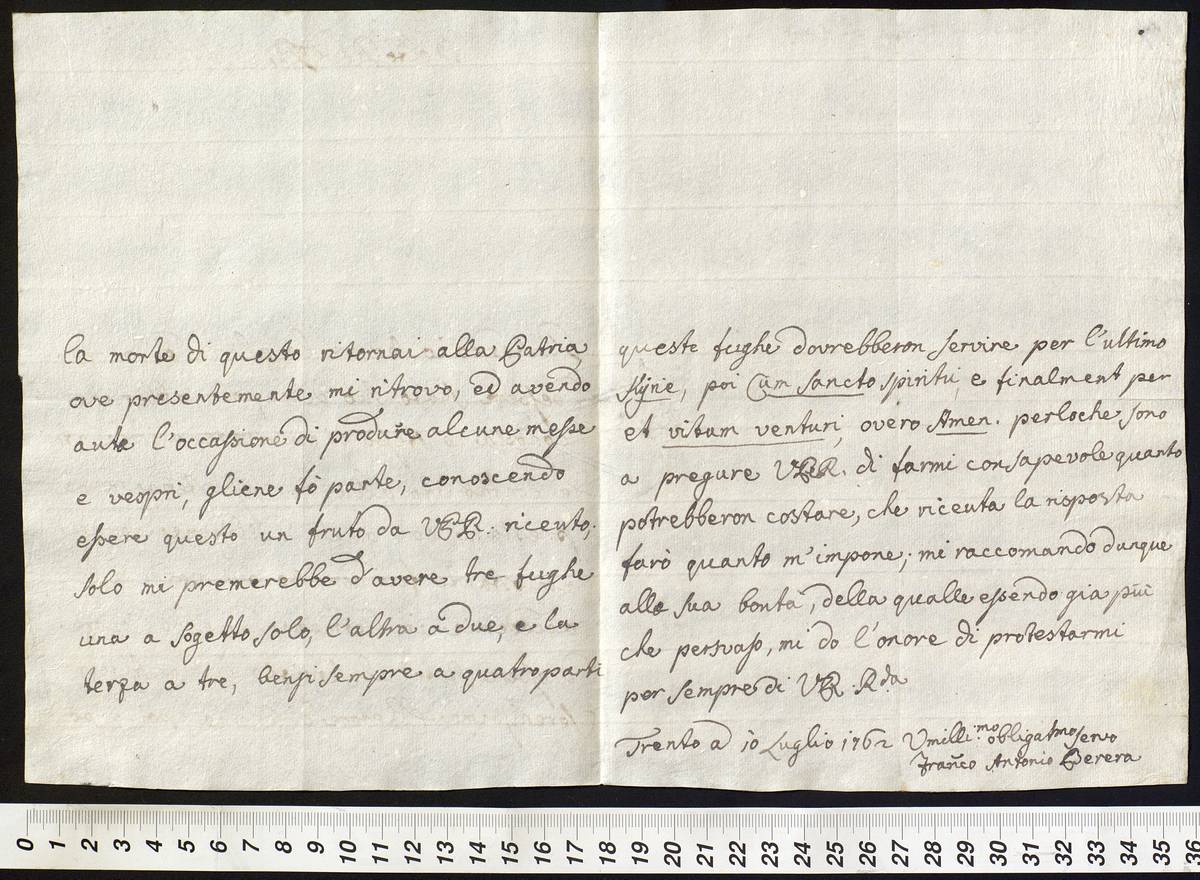 la morte di questo ritornai alla Patria
ove presentemente mi ritrovo, ed avendo
auta l'occassione di produre alcune messe
e vespri, gliene fò parte, conoscendo
essere questo un fruto da V.P.R. riceuto,
solo mi premerebbe d'avere tre fughe
una a sogetto solo, l'altra a due, e la
terza a tre, bensi sempre a quatro parti
queste fughe dovrebberon servire per l'ultimo
Kyrie, poi Cum Sancto Spiritu, e finalment per
et vitam venturi, overo Amen. perloche sono
a pregare V.P.R. di farmi consapevole quanto
potrebberon costare, che riceuta la risposta
farò quanto m'impone; mi raccomando dunque
alla sua bontà, della qualle essendo già più
che persuaso, mi do l'onore di protestarmi
per sempre di V.P. R.da
Trento a 10 Luglio 1762 Umilli.mo obligatmo servo
Franco Antonio Berera
0 1 2 3 4 5 6 7 8 9 10 11 12 13 14 15 16 17 18 19 20 21 22 23 24 25 26 27 28 29 30 31 32 33 34 35 36